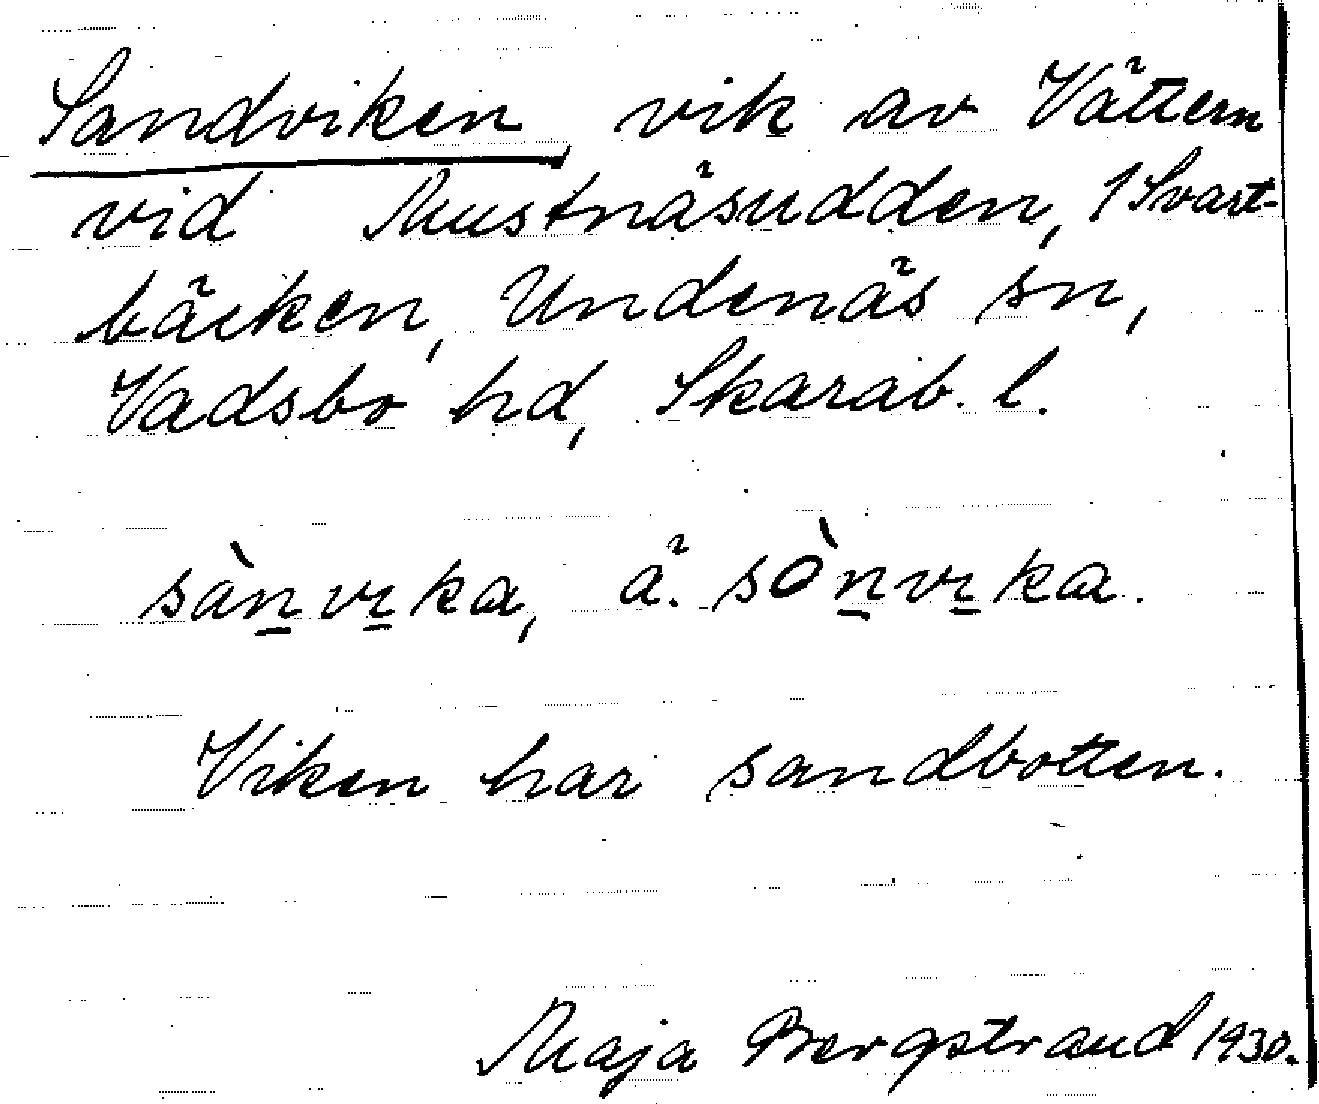 Sandviken, vik av Vättern
vid Mustnäsudden, 1 Svart-
bäcken, Undenäs sn,
Vadsbo hd, Skarab. l.
sàn̲vɪ̲ka, ä. sòn̲vɪ̲ka.
Viken har sandbotten.
Maja Bergstrand 1930.